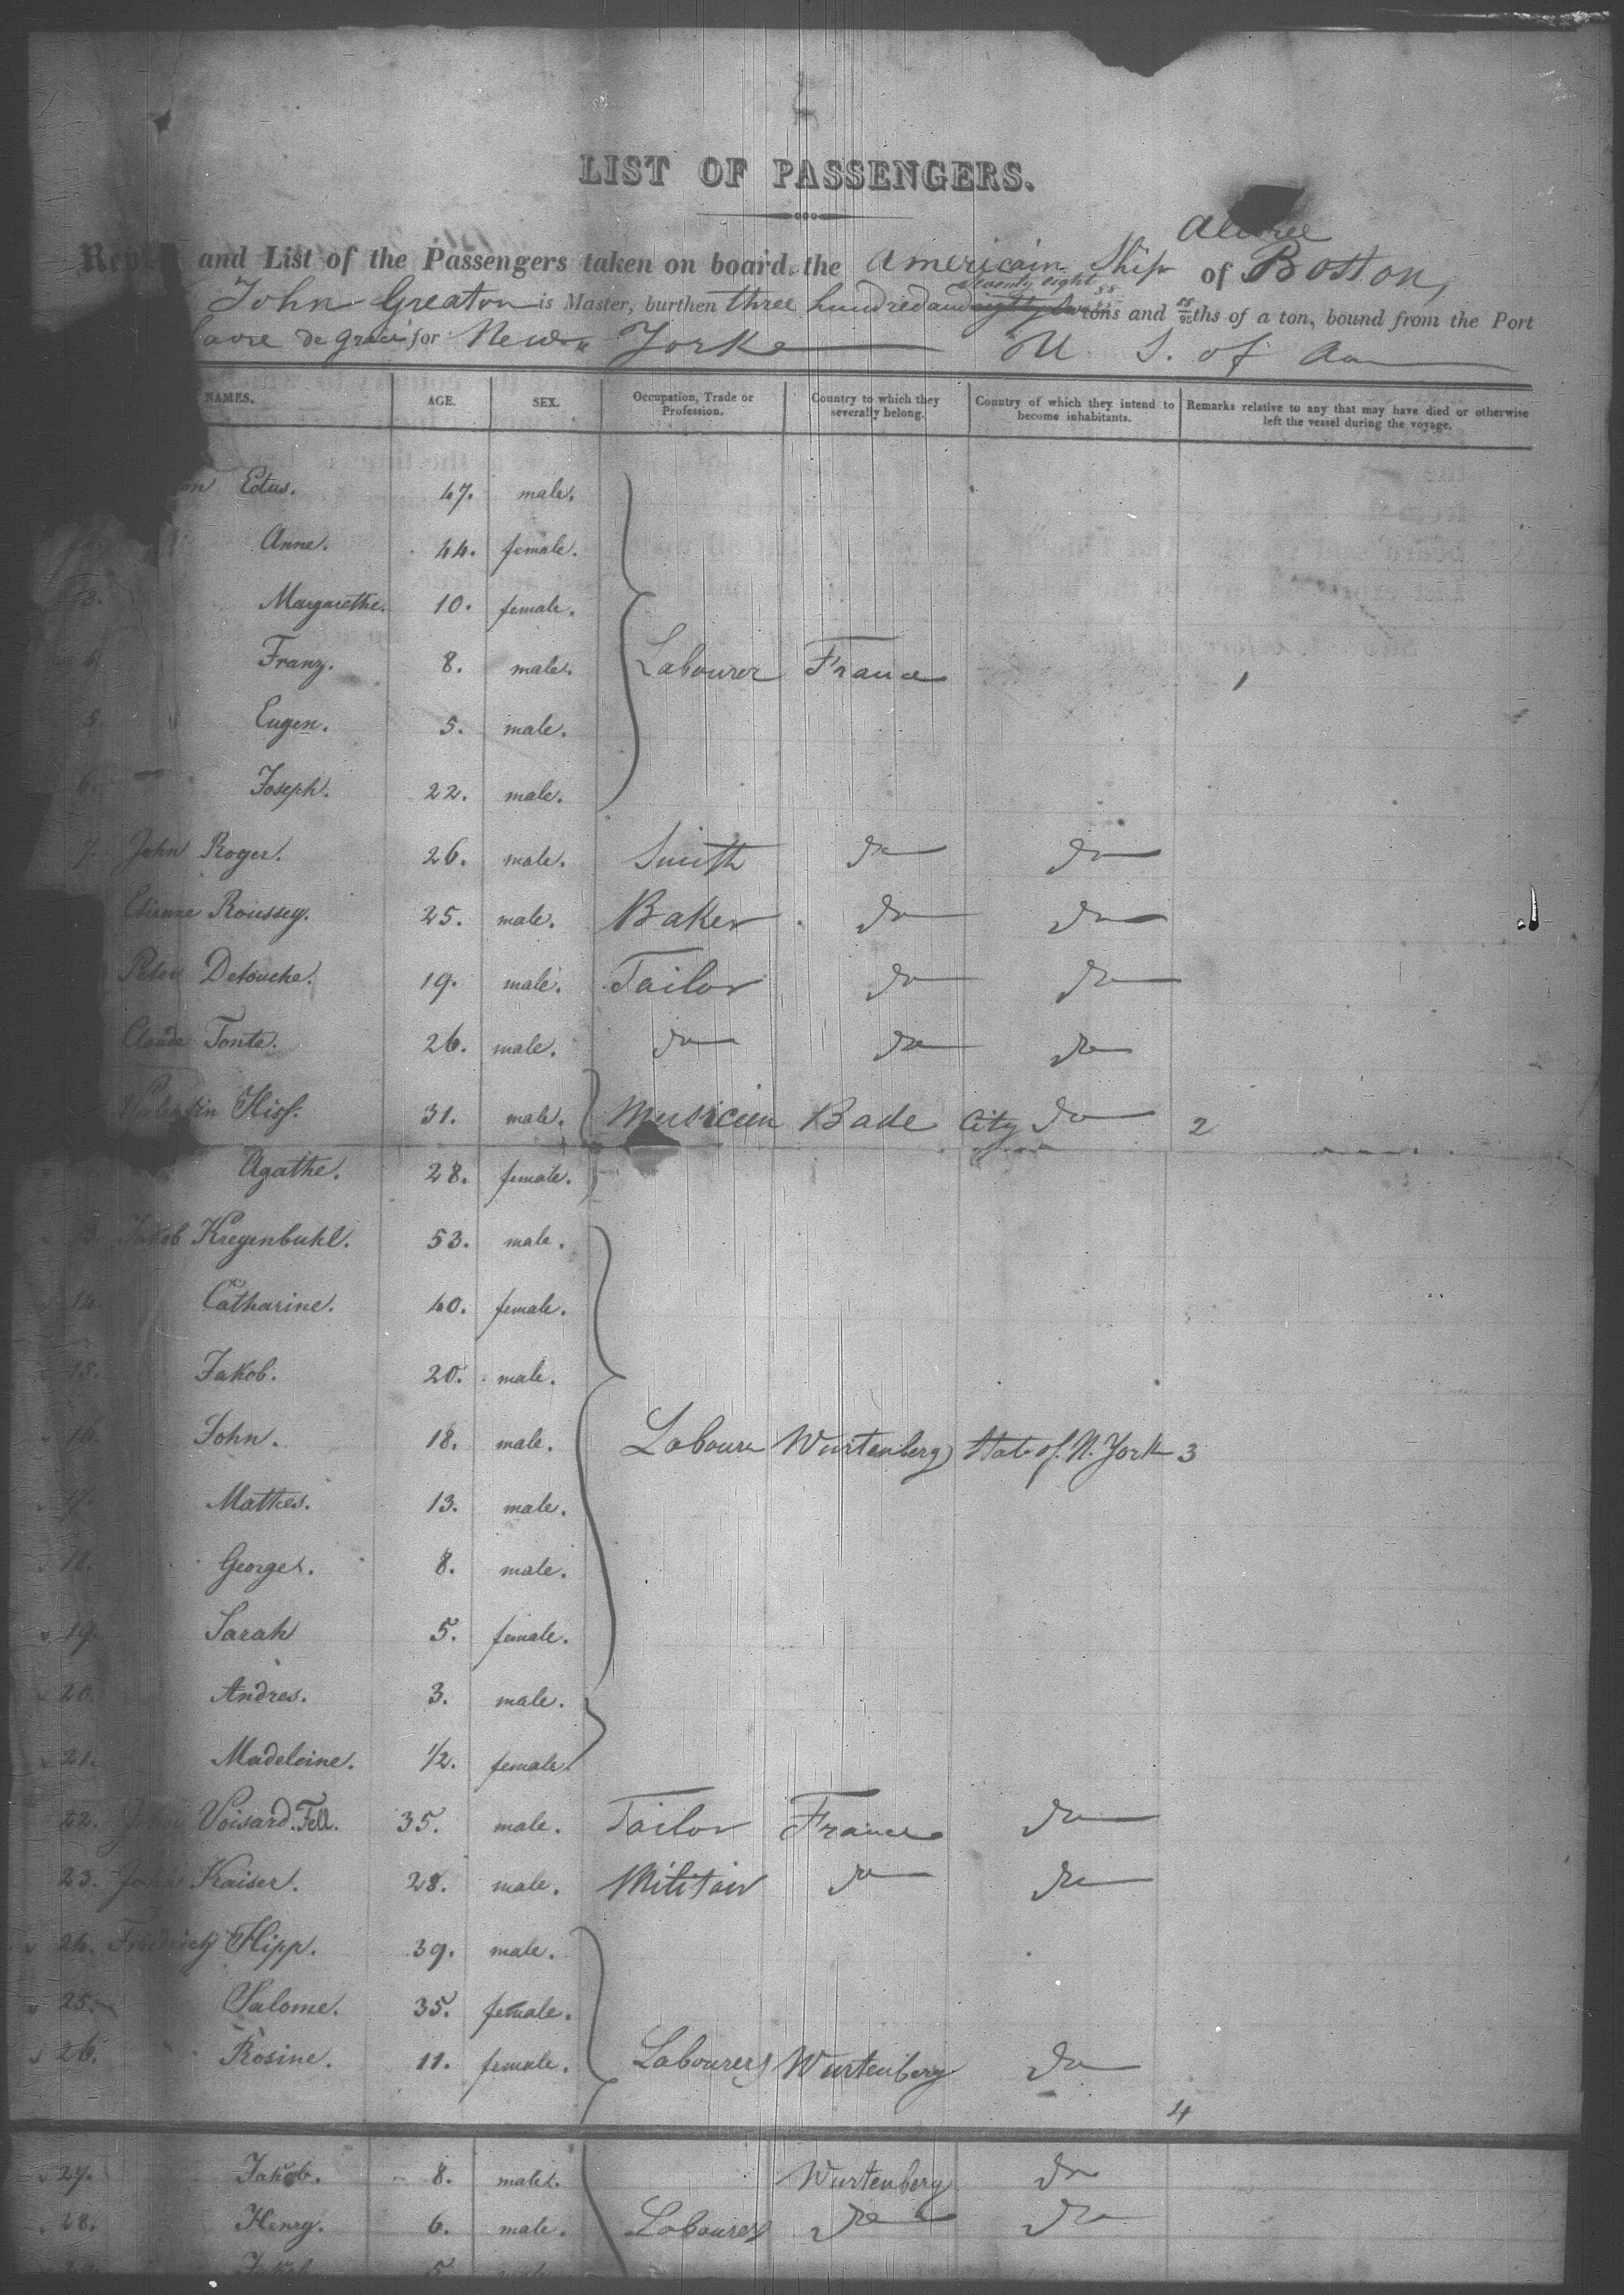 LIST OF PASSENGERS.
and List of the Passengers taken on board the American Ship of Boston,
seventy eight
John Greaton is Master, burthen three hundred and tons and ths of a ton, bound from the Port
avre de grace for New York U. S. of Am
NAMES. AGE. SEX. Occupation, Trade or Profession. Country to which they severally belong. Country of which they intend to become inhabitants. Remarks relative to any that may have died or otherwise left the vessel during the voyage.
on Edus. 47. male.
Anne. 44. female.
3. Margarethe. 10. female.
Franz. 8. male. Labourer France 1
5. " Eugen. 5. male.
6. Joseph. 22. male.
7. John Roger. 26. male. Smith do do
Etienne Roussey. 25. male. Baker do do
Peter Delouche. 19. male. Tailor do do
Claude Tonte. 26. male. do do do
Valentin Hiss. 31. male. Musicien Bade City do 2
Agathe. 28. female.
13. Jakob Kreyenbuhl. 53. male.
14. Catharine. 40. female.
15. Jakob. 20. male.
16. John. 18. male. Laboure Wurtenberg State of N. York 3
17. Mathes. 13. male.
18. George. 8. male.
19. Sarah 5. female.
20. Andres. 3. male.
21. Madeleine. 1/2. female.
22. Voisard. Fell. 35. male. Tailor France do
23. John Kraiser. 28. male. Militair do do
24. Friedrich Hipp. 39. male.
25. Salome. 35. female.
26. Rosine. 11. female. Labourers Wurtenberg do
4
27. Jakob. 8. male. Wurtenberg do
28. Henry. 6. male. Labourers do do
5.